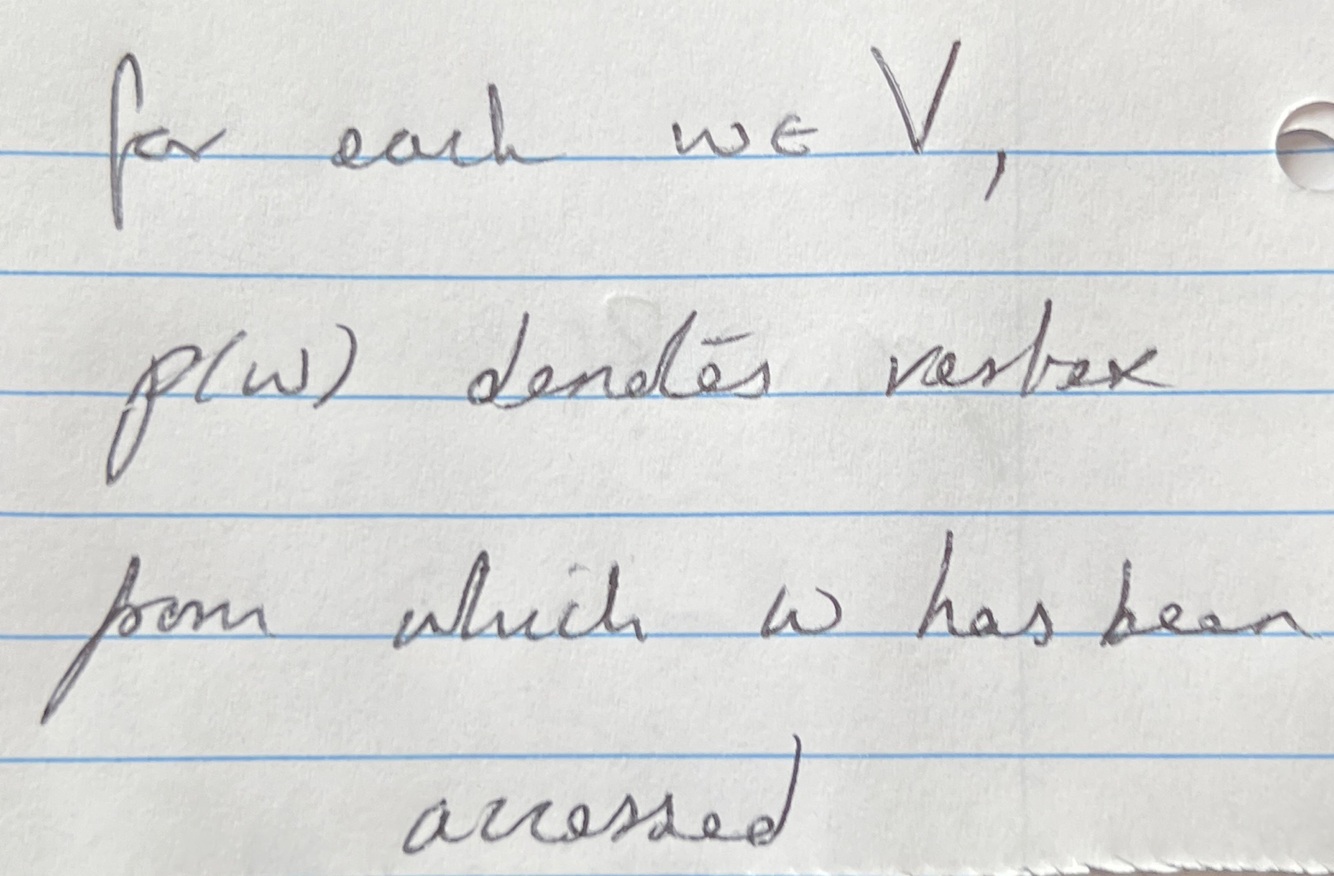 for each w ∈ V,
p(w) denotes vertex
from which w has been
accessed